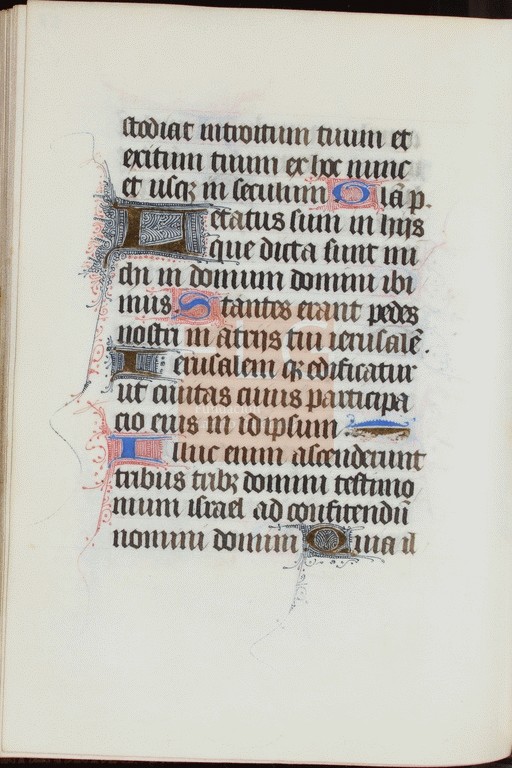 stodiat introitum tuum et
exitum tuum ex hoc nunc
et usqꝫ in seculum Gla̅ p.
Letatus sum in hijs
que dicta sunt mi
chi in domum domini ibi
mus Stantes erant pedes
nostri in atrijs tui ierusale̅.
Ierusalem q̅ edificatur
ut ciuitas cuius participa
cio eius in idipsum
Illuc enim ascenderunt
tribus tribꝫ domini testimo
nium israel ad confitendu̅
nomini domini Quia il